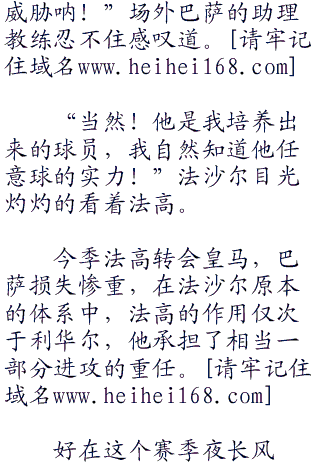 威胁呐！”场外巴萨的助理
教练忍不住感叹道。[请牢记
住域名www.heihei168.com]
“当然！他是我培养出
来的球员，我自然知道他任
意球的实力！”法沙尔目光
灼灼的看着法高。
今季法高转会皇马，巴
萨损失惨重，在法沙尔原本
的体系中，法高的作用仅次
于利华尔，他承担了相当一
部分进攻的重任。[请牢记住
域名www.heihei168.com]
好在这个赛季夜长风